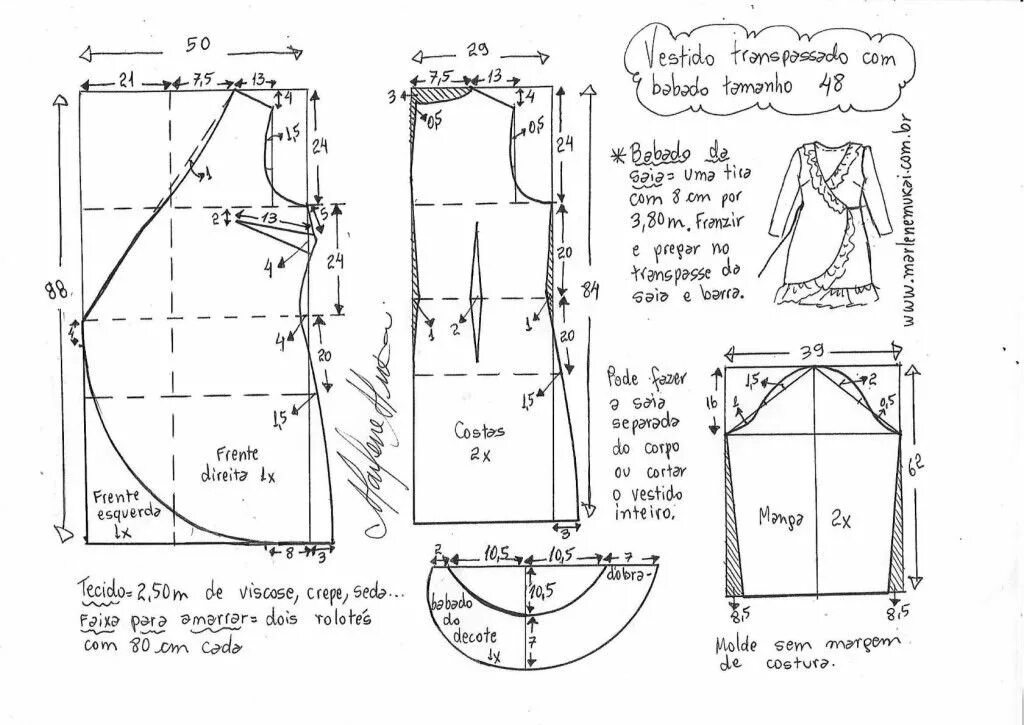 Vestido transpassado com
babado tamanho 48
50
21
7,5
13
4
1,5
24
1
2
13
5
4
24
88
4
4
20
1,5
Frente
direita 1x
Frente
esquerda
1x
8
3
Marlene Mukai
29
7,5
13
3
4
0,5
0,5
24
20
84
1
2
1
20
1,5
Costas
2x
3
* Babado da
saia = uma tira
com 8 cm por
3,80 m. Franzir
e pregar no
transpasse da
saia e barra.
www.marlenemukai.com.br
Pode fazer
a saia
separada
do corpo
ou cortar
o vestido
inteiro.
39
1,5
2
16
1
0,5
62
Manga 2x
8,5
8,5
Molde sem margem
de costura.
2
10,5
10,5
7
dobra
10,5
babado
do
decote
1x
7
Tecido = 2,50m de viscose, crepe, seda...
Faixa para amarrar = dois rolotés
com 80 cm cada